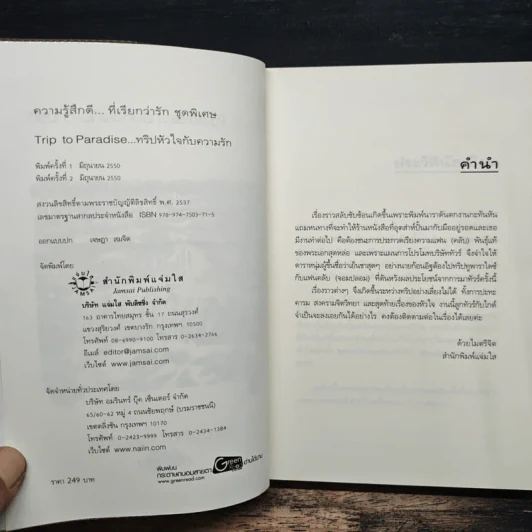 ความรู้สึกดี... ที่เรียกว่ารัก ชุดพิเศษ
Trip to Paradise...ทริปหัวใจกับความรัก
พิมพ์ครั้งที่ 1 มิถุนายน 2550
พิมพ์ครั้งที่ 2 มิถุนายน 2550
สงวนลิขสิทธิ์ตามพระราชบัญญัติลิขสิทธิ์ พ.ศ. 2537
เลขมาตรฐานสากลประจำหนังสือ ISBN 978-974-7503-71-5
ออกแบบปก เจษฎา สมจิต
จัดพิมพ์โดย
สำนักพิมพ์แจ่มใส
Jamsai Publishing
บริษัท แจ่มใส พับลิชชิ่ง จำกัด
163 อาคารไทยสมุทร ชั้น 17 ถนนสุรวงศ์
แขวงสุริยวงศ์ เขตบางรัก กรุงเทพฯ 10500
โทรศัพท์ 08-6990-9100 โทรสาร 0-2634-2766
อีเมล์ editor@jamsai.com
เว็บไซต์ www.jamsai.com
จัดจำหน่ายทั่วประเทศโดย
บริษัท อมรินทร์ บุ๊ค เซ็นเตอร์ จำกัด
65/60-62 หมู่ 4 ถนนชัยพฤกษ์ (บรมราชชนนี)
เขตตลิ่งชัน กรุงเทพฯ 10170
โทรศัพท์ 0-2423-9999 โทรสาร 0-2434-1384
เว็บไซต์ www.naiin.com
พิมพ์บน
กระดาษถนอมสายตา Green Read
www.greenread.com
ราคา 249 บาท
คำนำ
เรื่องราวสลับซับซ้อนเกิดขึ้นเพราะพิมพ์นาราดันตกงานกะทันหัน
แถมหนทางที่จะทำให้ร้านหนังสือที่อุตส่าห์ปั้นมากับมืออยู่รอดและเธอ
มีงานทำต่อไป คือต้องชนะการประกวดเรียงความแฟน (คลับ) พันธุ์แท้
ของพระเอกสุดหล่อ และเพราะแผนการโปรโมทบริษัททัวร์ จึงจำใจให้
ดาราหนุ่มผู้ขึ้นชื่อว่าเย็นชาสุดๆ อย่างนายก้อนอิฐต้องไปทริปทูพาราไดซ์
กับแฟนคลับ (จอมปลอม) ที่ดันหวังผลประโยชน์จากการมาทัวร์ครั้งนี้
เรื่องราวต่างๆ จึงเกิดขึ้นระหว่างทริปอย่างเลี่ยงไม่ได้ ทั้งการปะทะ
คารม สงครามจิตวิทยา และสุดท้ายเรื่องของหัวใจ งานนี้ลูกทัวร์กับไกด์
จำเป็นจะลงเอยกันได้อย่างไร คงต้องติดตามต่อในเรื่องได้เลยค่ะ
ด้วยไมตรีจิต
สำนักพิมพ์แจ่มใส